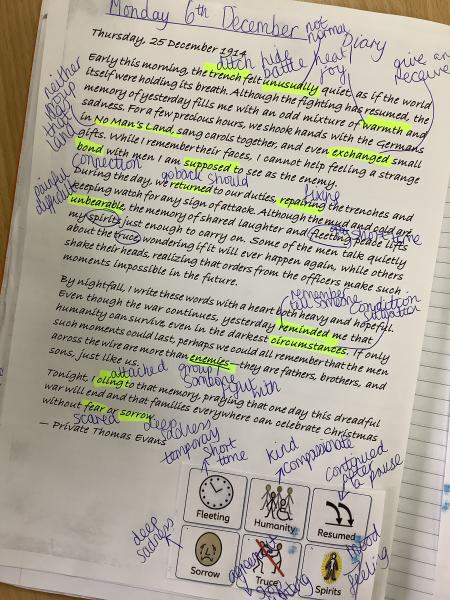 Monday 6th December
Diary
not normal
Thursday, 25 December 1914
ditch hide battle heat joy
give and receive
Early this morning, the trench felt unusually quiet, as if the world
itself were holding its breath. Although the fighting has resumed, the
memory of yesterday fills me with an odd mixture of warmth and
sadness. For a few precious hours, we shook hands with the Germans
in No Man's Land, sang carols together, and even exchanged small
gifts. While I remember their faces, I cannot help feeling a strange
bond with men I am supposed to see as the enemy.
neither
that
land
connection
go back should
fixing
During the day, we returned to our duties, repairing the trenches and
keeping watch for any sign of attack. Although the mud and cold are
unbearable, the memory of shared laughter and fleeting peace lifts
my spirits just enough to carry on. Some of the men talk quietly
about the truce, wondering if it will ever happen again, while others
shake their heads, realizing that orders from the officers make such
moments impossible in the future.
painful
short time
remember
tell someone
condition
situation
By nightfall, I write these words with a heart both heavy and hopeful.
Even though the war continues, yesterday reminded me that
humanity can survive even in the darkest circumstances. If only
such moments could last, perhaps we could all remember that the men
across the wire are more than enemies—they are fathers, brothers, and
sons, just like us.
attached group
someone
fight with
Tonight, I cling to that memory, praying that one day this dreadful
war will end and that families everywhere can celebrate Christmas
without fear or sorrow.
scared
deep
— Private Thomas Evans
temporary
short time
kind
compassionate
continued
after
a pause
Fleeting
Humanity
Resumed
deep
sadness
Sorrow
Truce
Spirits
agreement
mood
feeling